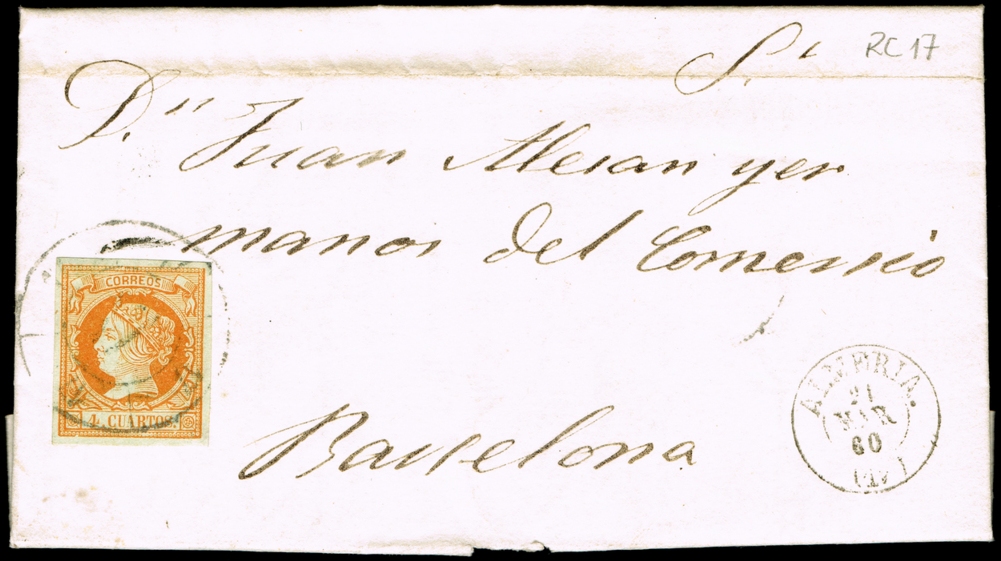 RC 17
S.r
D.n Juan Alesan y er
manos del Comercio
Barcelona
CORREOS
4. CUARTOS.
ALMERIA.
21
MAR
60